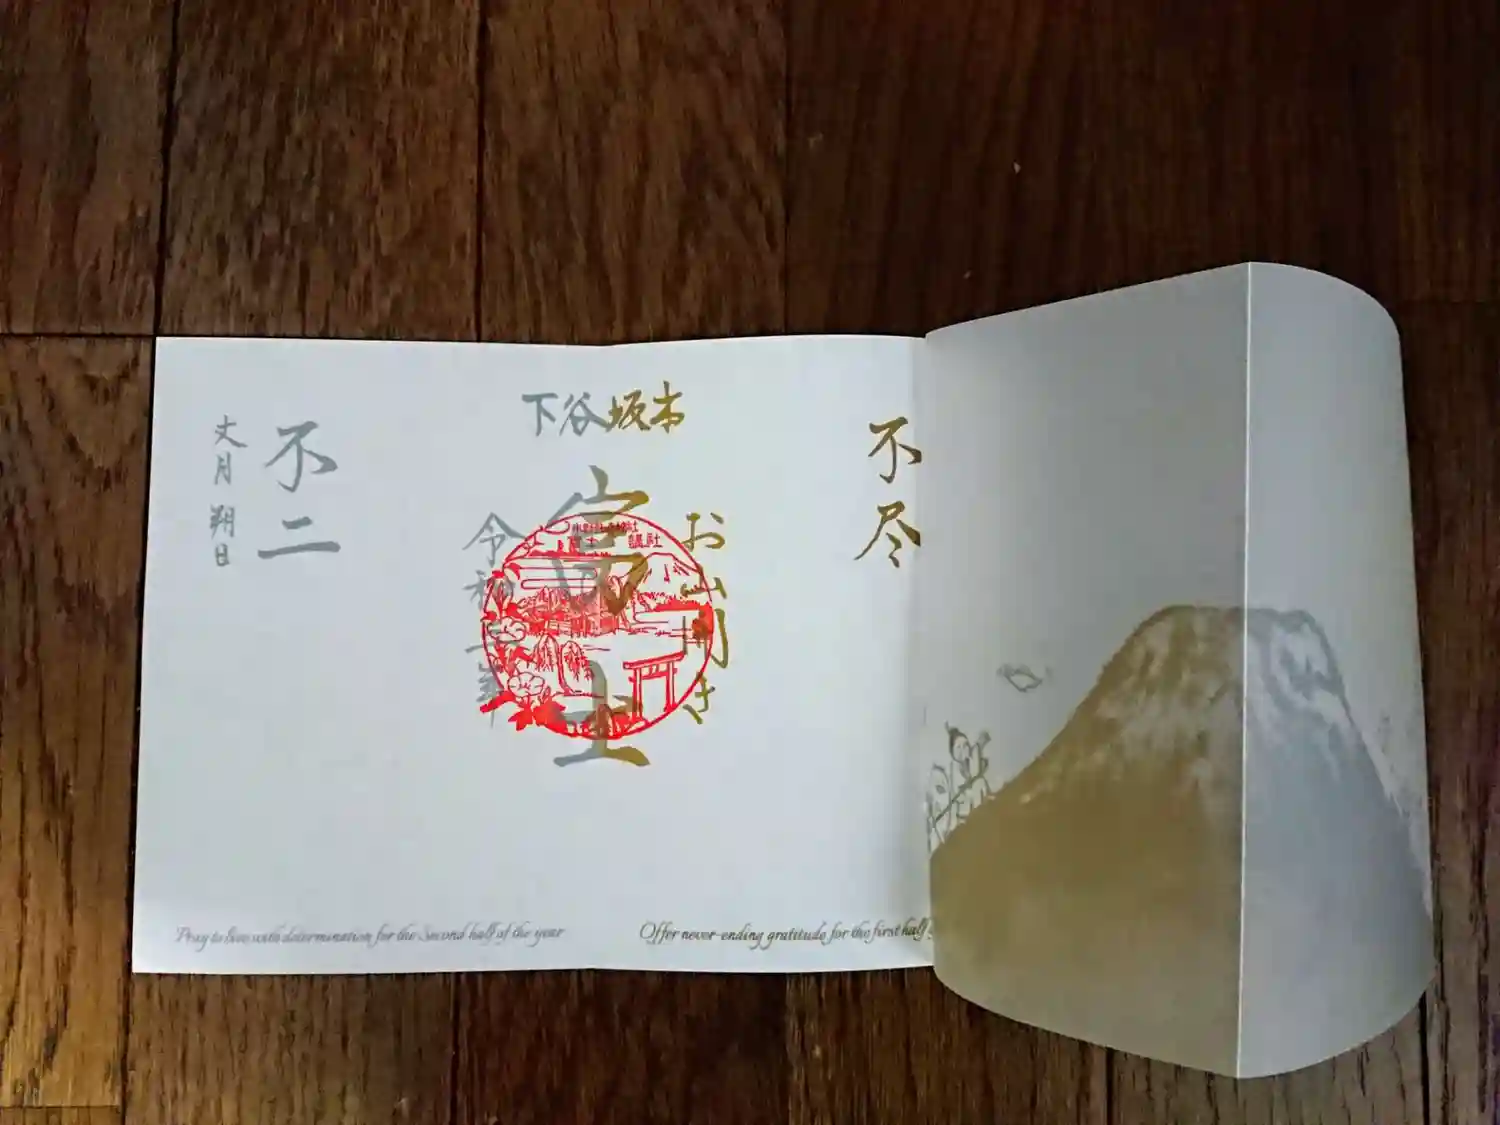 下谷坂本
不尽
お山開き
富士
令和
年
不二
文月朔日
富士 講社
Pray to live with determination for the Second half of the year
Offer never-ending gratitude for the first half